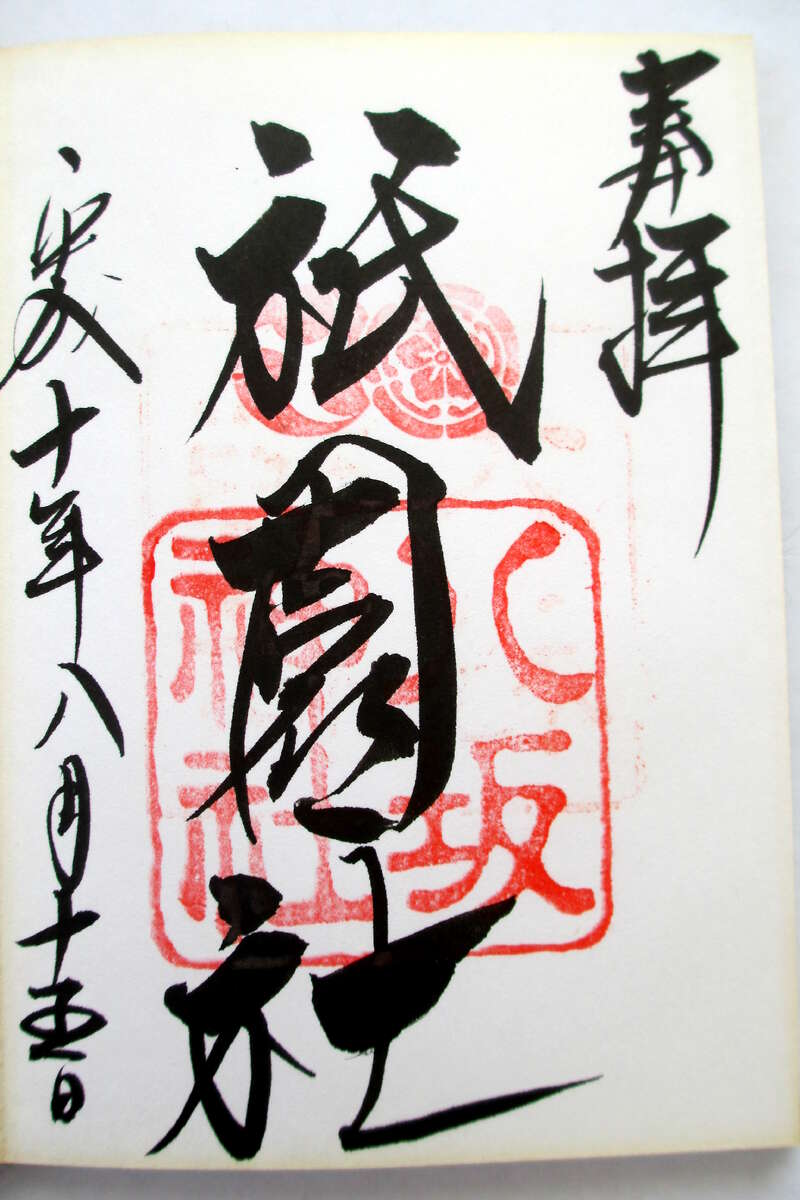 奉拝
祇園社
八坂
神社
平成十年八月十五日